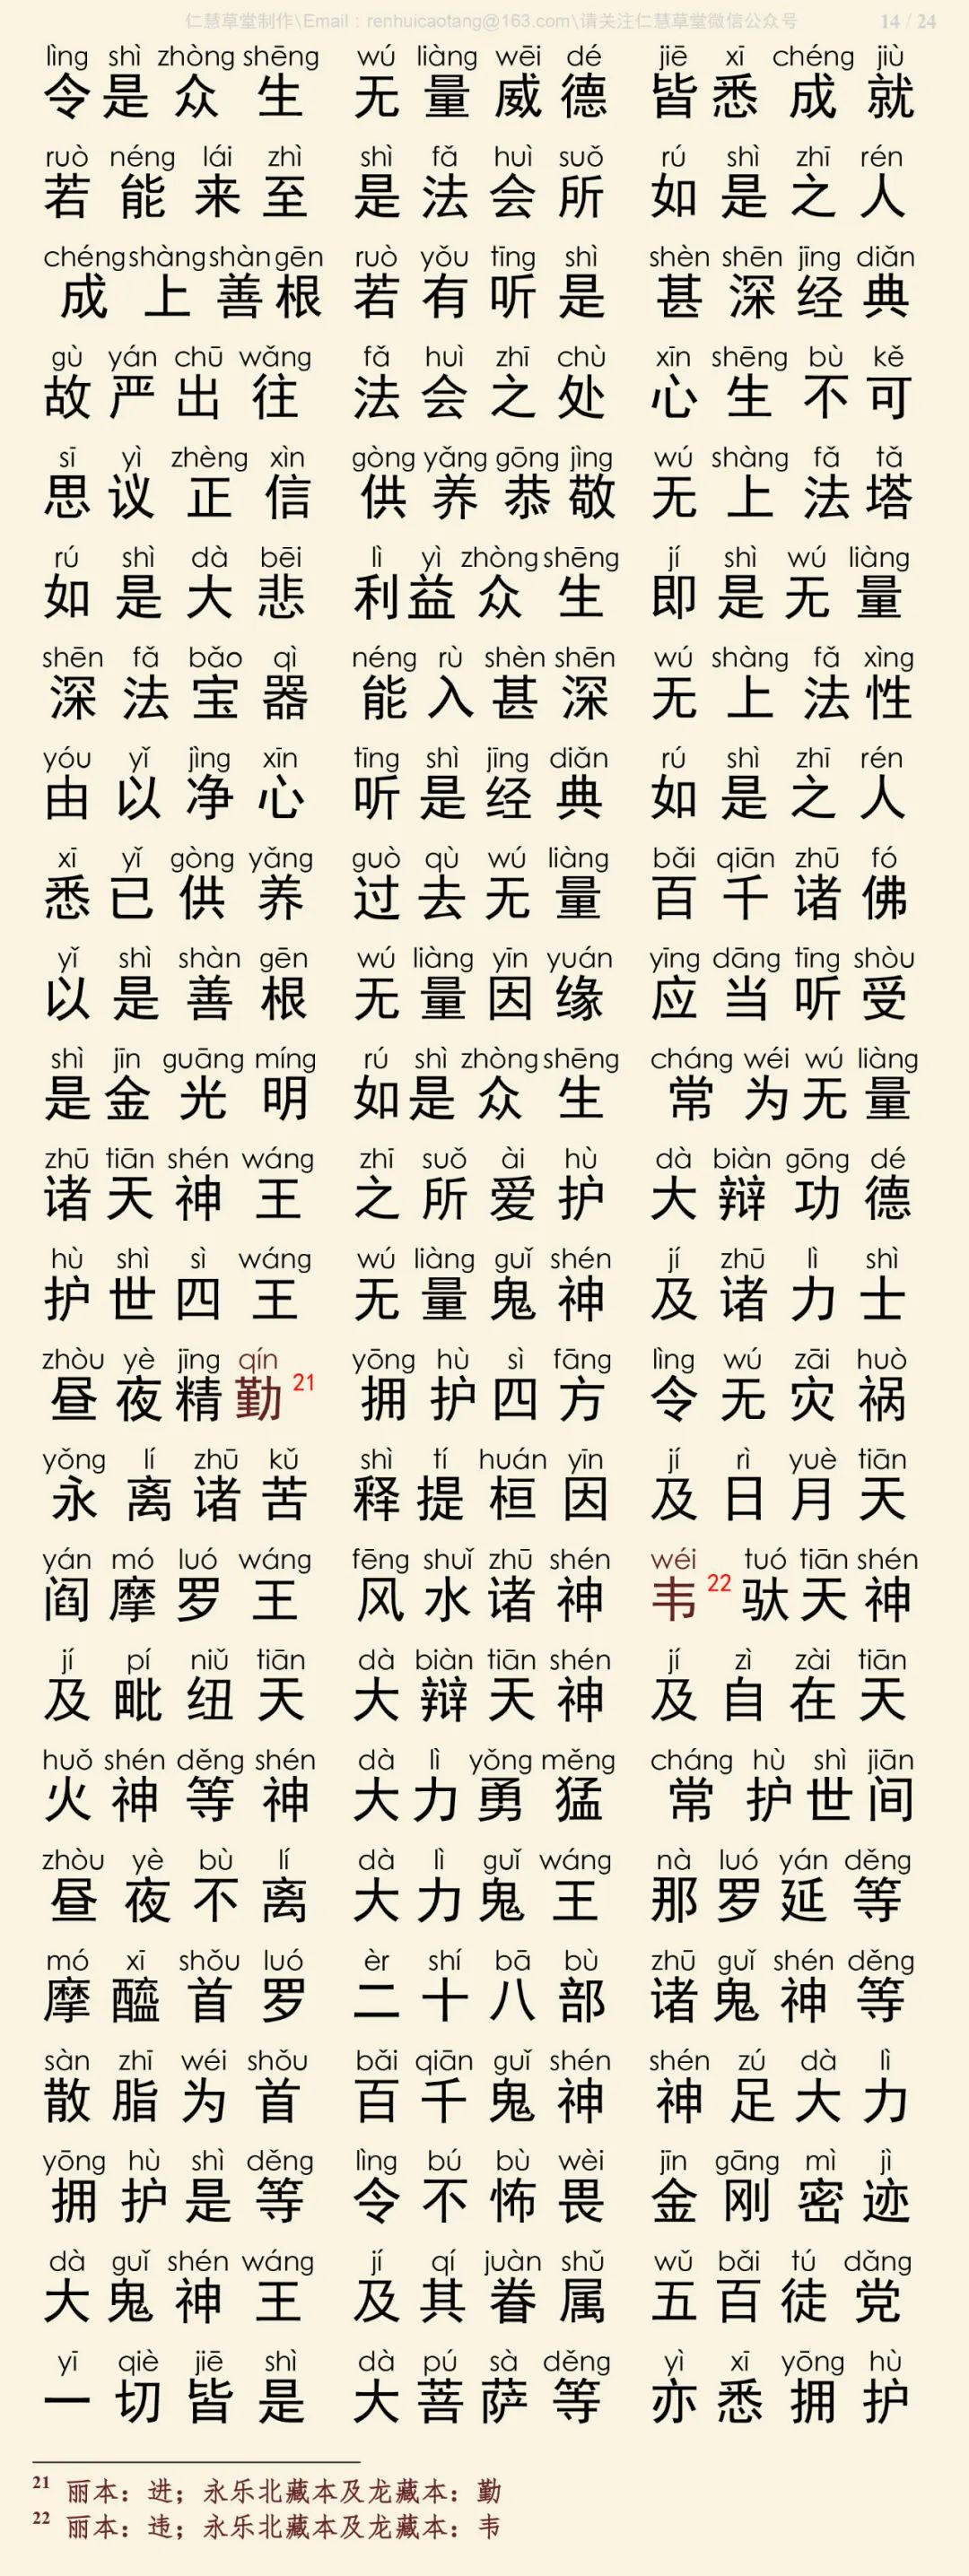 仁慧草堂制作\Email：renhuicaotang@163.com\请关注仁慧草堂微信公众号 14 / 24
lìng shì zhòng shēng wú liàng wēi dé jiē xī chéng jiù
令是众生 无量威德 皆悉成就
ruò néng lái zhì shì fǎ huì suǒ rú shì zhī rén
若能来至 是法会所 如是之人
chéng shàng shàn gēn ruò yǒu tīng shì shèn shēn jīng diǎn
成上善根 若有听是 甚深经典
gù yán chū wǎng fǎ huì zhī chù xīn shēng bù kě
故严出往 法会之处 心生不可
sī yì zhèng xìn gòng yǎng gōng jìng wú shàng fǎ tǎ
思议正信 供养恭敬 无上法塔
rú shì dà bēi lì yì zhòng shēng jí shì wú liàng
如是大悲 利益众生 即是无量
shēn fǎ bǎo qì néng rù shèn shēn wú shàng fǎ xìng
深法宝器 能入甚深 无上法性
yóu yǐ jìng xīn tīng shì jīng diǎn rú shì zhī rén
由以净心 听是经典 如是之人
xī yǐ gòng yǎng guò qù wú liàng bǎi qiān zhū fó
悉已供养 过去无量 百千诸佛
yǐ shì shàn gēn wú liàng yīn yuán yīng dāng tīng shòu
以是善根 无量因缘 应当听受
shì jīn guāng míng rú shì zhòng shēng cháng wéi wú liàng
是金光明 如是众生 常为无量
zhū tiān shén wáng zhī suǒ ài hù dà biàn gōng dé
诸天神王 之所爱护 大辩功德
hù shì sì wáng wú liàng guǐ shén jí zhū lì shì
护世四王 无量鬼神 及诸力士
zhòu yè jīng qín yōng hù sì fāng lìng wú zāi huò
昼夜精勤21 拥护四方 令无灾祸
yǒng lí zhū kǔ shì tí huán yīn jí rì yuè tiān
永离诸苦 释提桓因 及日月天
yán mó luó wáng fēng shuǐ zhū shén wéi tuó tiān shén
阎摩罗王 风水诸神 韦22驮天神
jí pí niǔ tiān dà biàn tiān shén jí zì zài tiān
及毗纽天 大辩天神 及自在天
huǒ shén děng shén dà lì yǒng měng cháng hù shì jiān
火神等神 大力勇猛 常护世间
zhòu yè bù lí dà lì guǐ wáng nà luó yán děng
昼夜不离 大力鬼王 那罗延等
mó xī shǒu luó èr shí bā bù zhū guǐ shén děng
摩醯首罗 二十八部 诸鬼神等
sàn zhī wéi shǒu bǎi qiān guǐ shén shén zú dà lì
散脂为首 百千鬼神 神足大力
yōng hù shì děng lìng bú bù wèi jīn gāng mì jì
拥护是等 令不怖畏 金刚密迹
dà guǐ shén wáng jí qí juàn shǔ wǔ bǎi tú dǎng
大鬼神王 及其眷属 五百徒党
yī qiè jiē shì dà pú sà děng yì xī yōng hù
一切皆是 大菩萨等 亦悉拥护
21 丽本：进；永乐北藏本及龙藏本：勤
22 丽本：违；永乐北藏本及龙藏本：韦